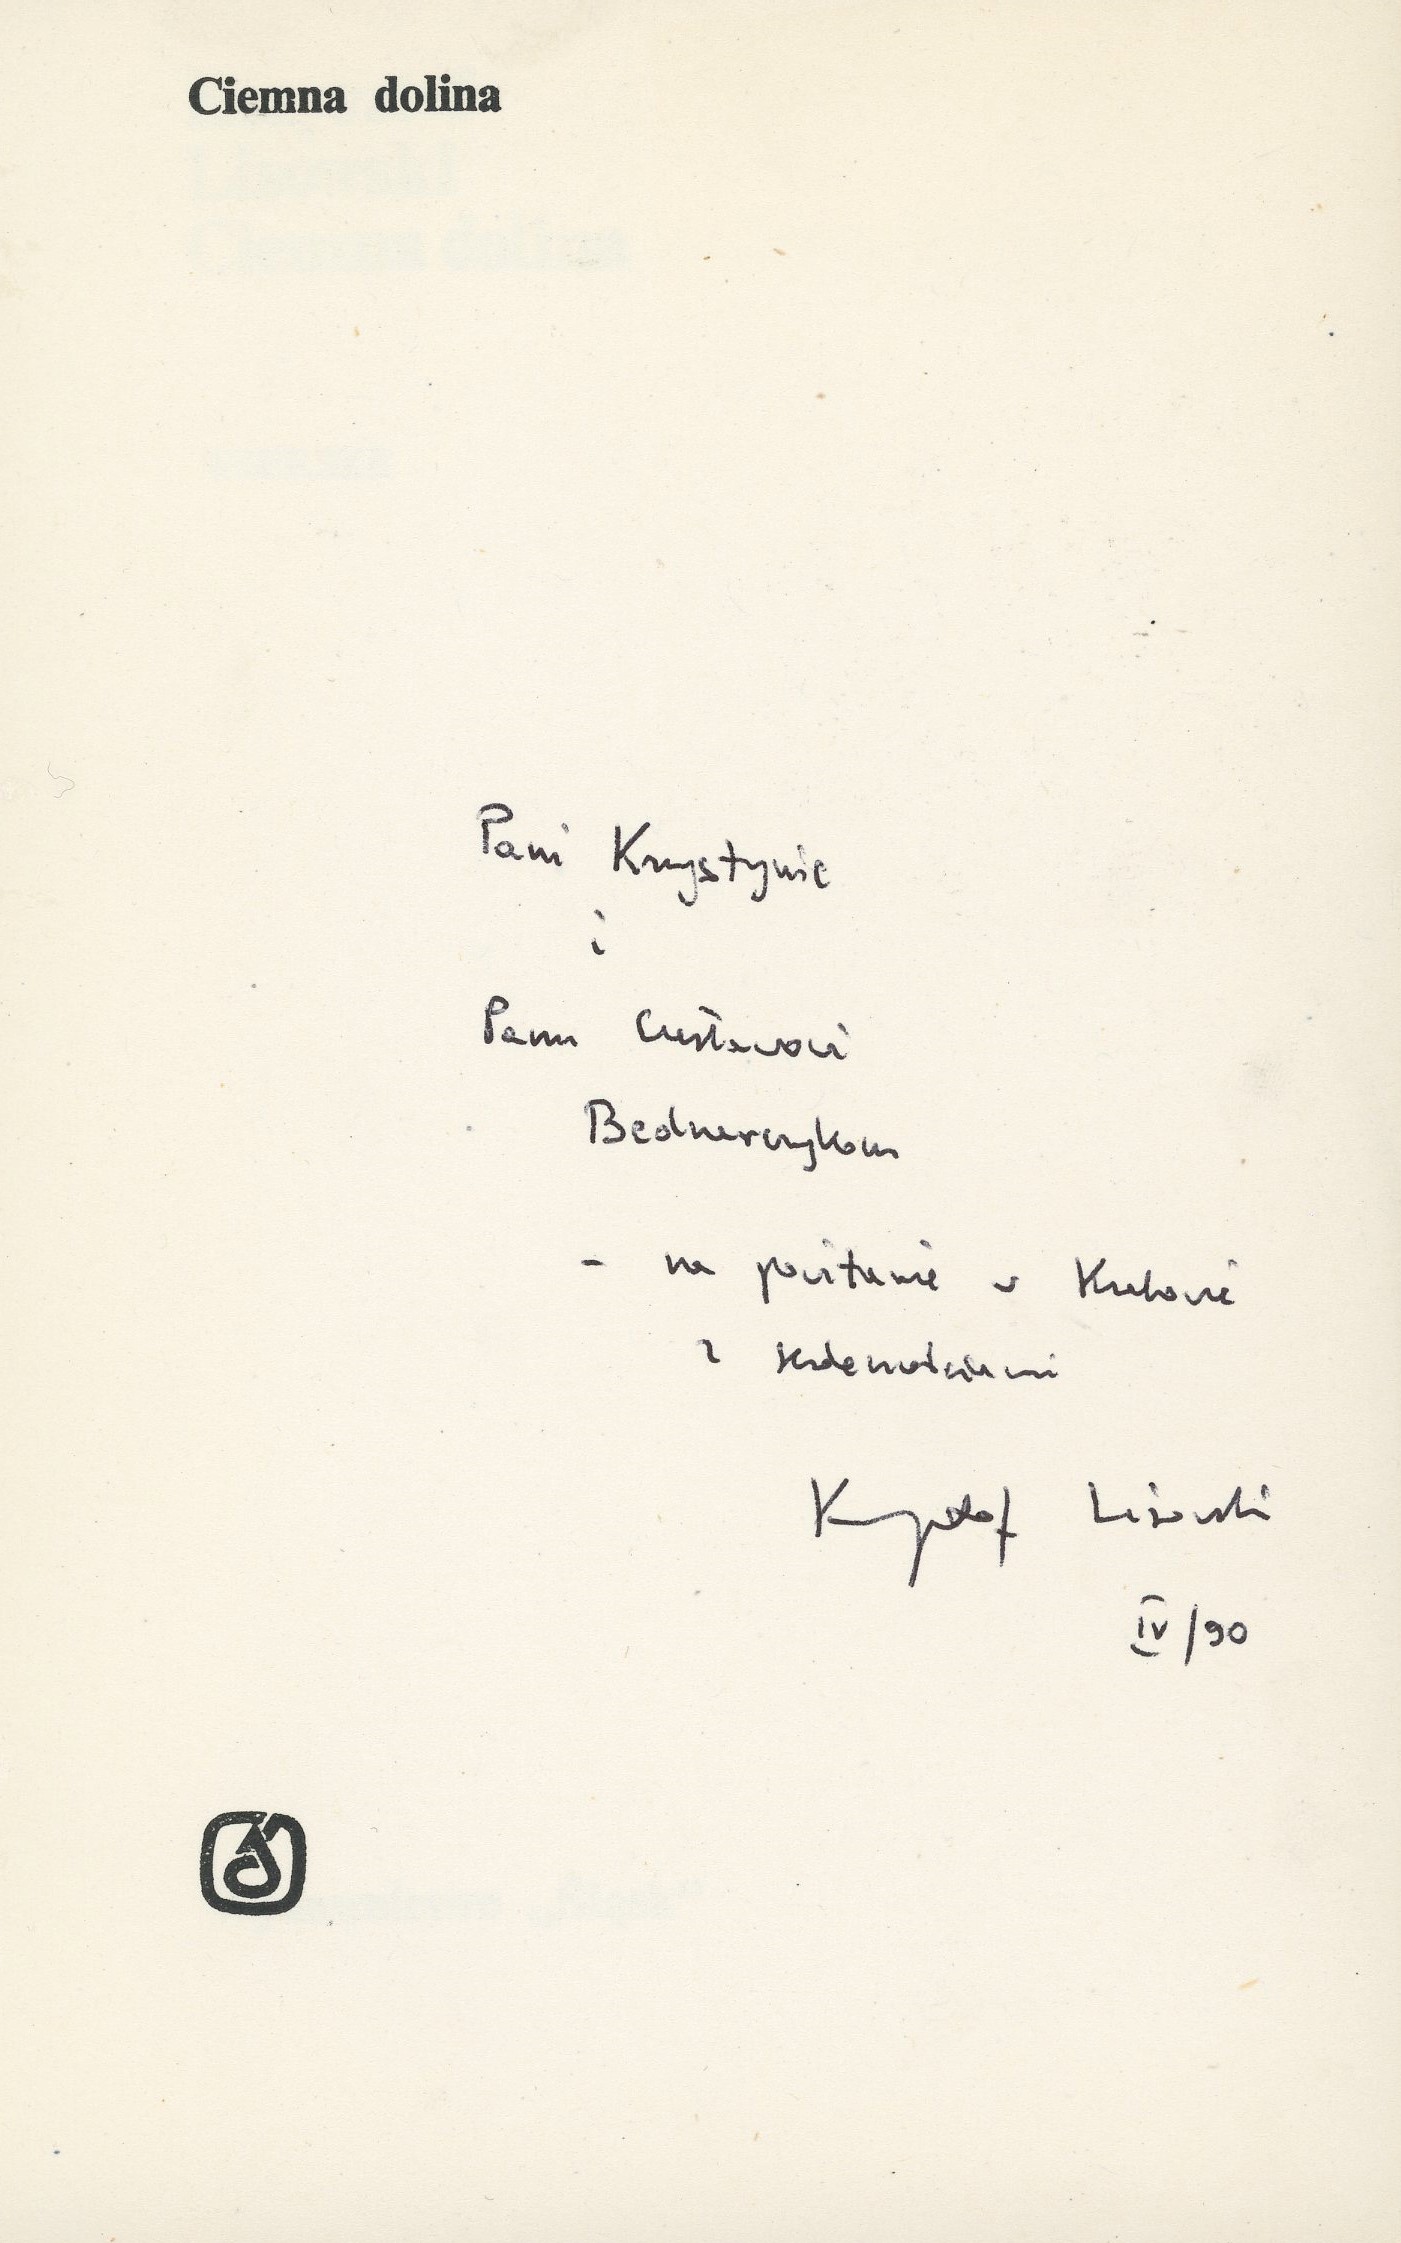 Ciemna dolina
Pani Krystynie
i
Panu Czesławowi
Bednarczykom
- na powitanie w Krakowie
z serdecznościami
Krzysztof Lisowski
IV/90